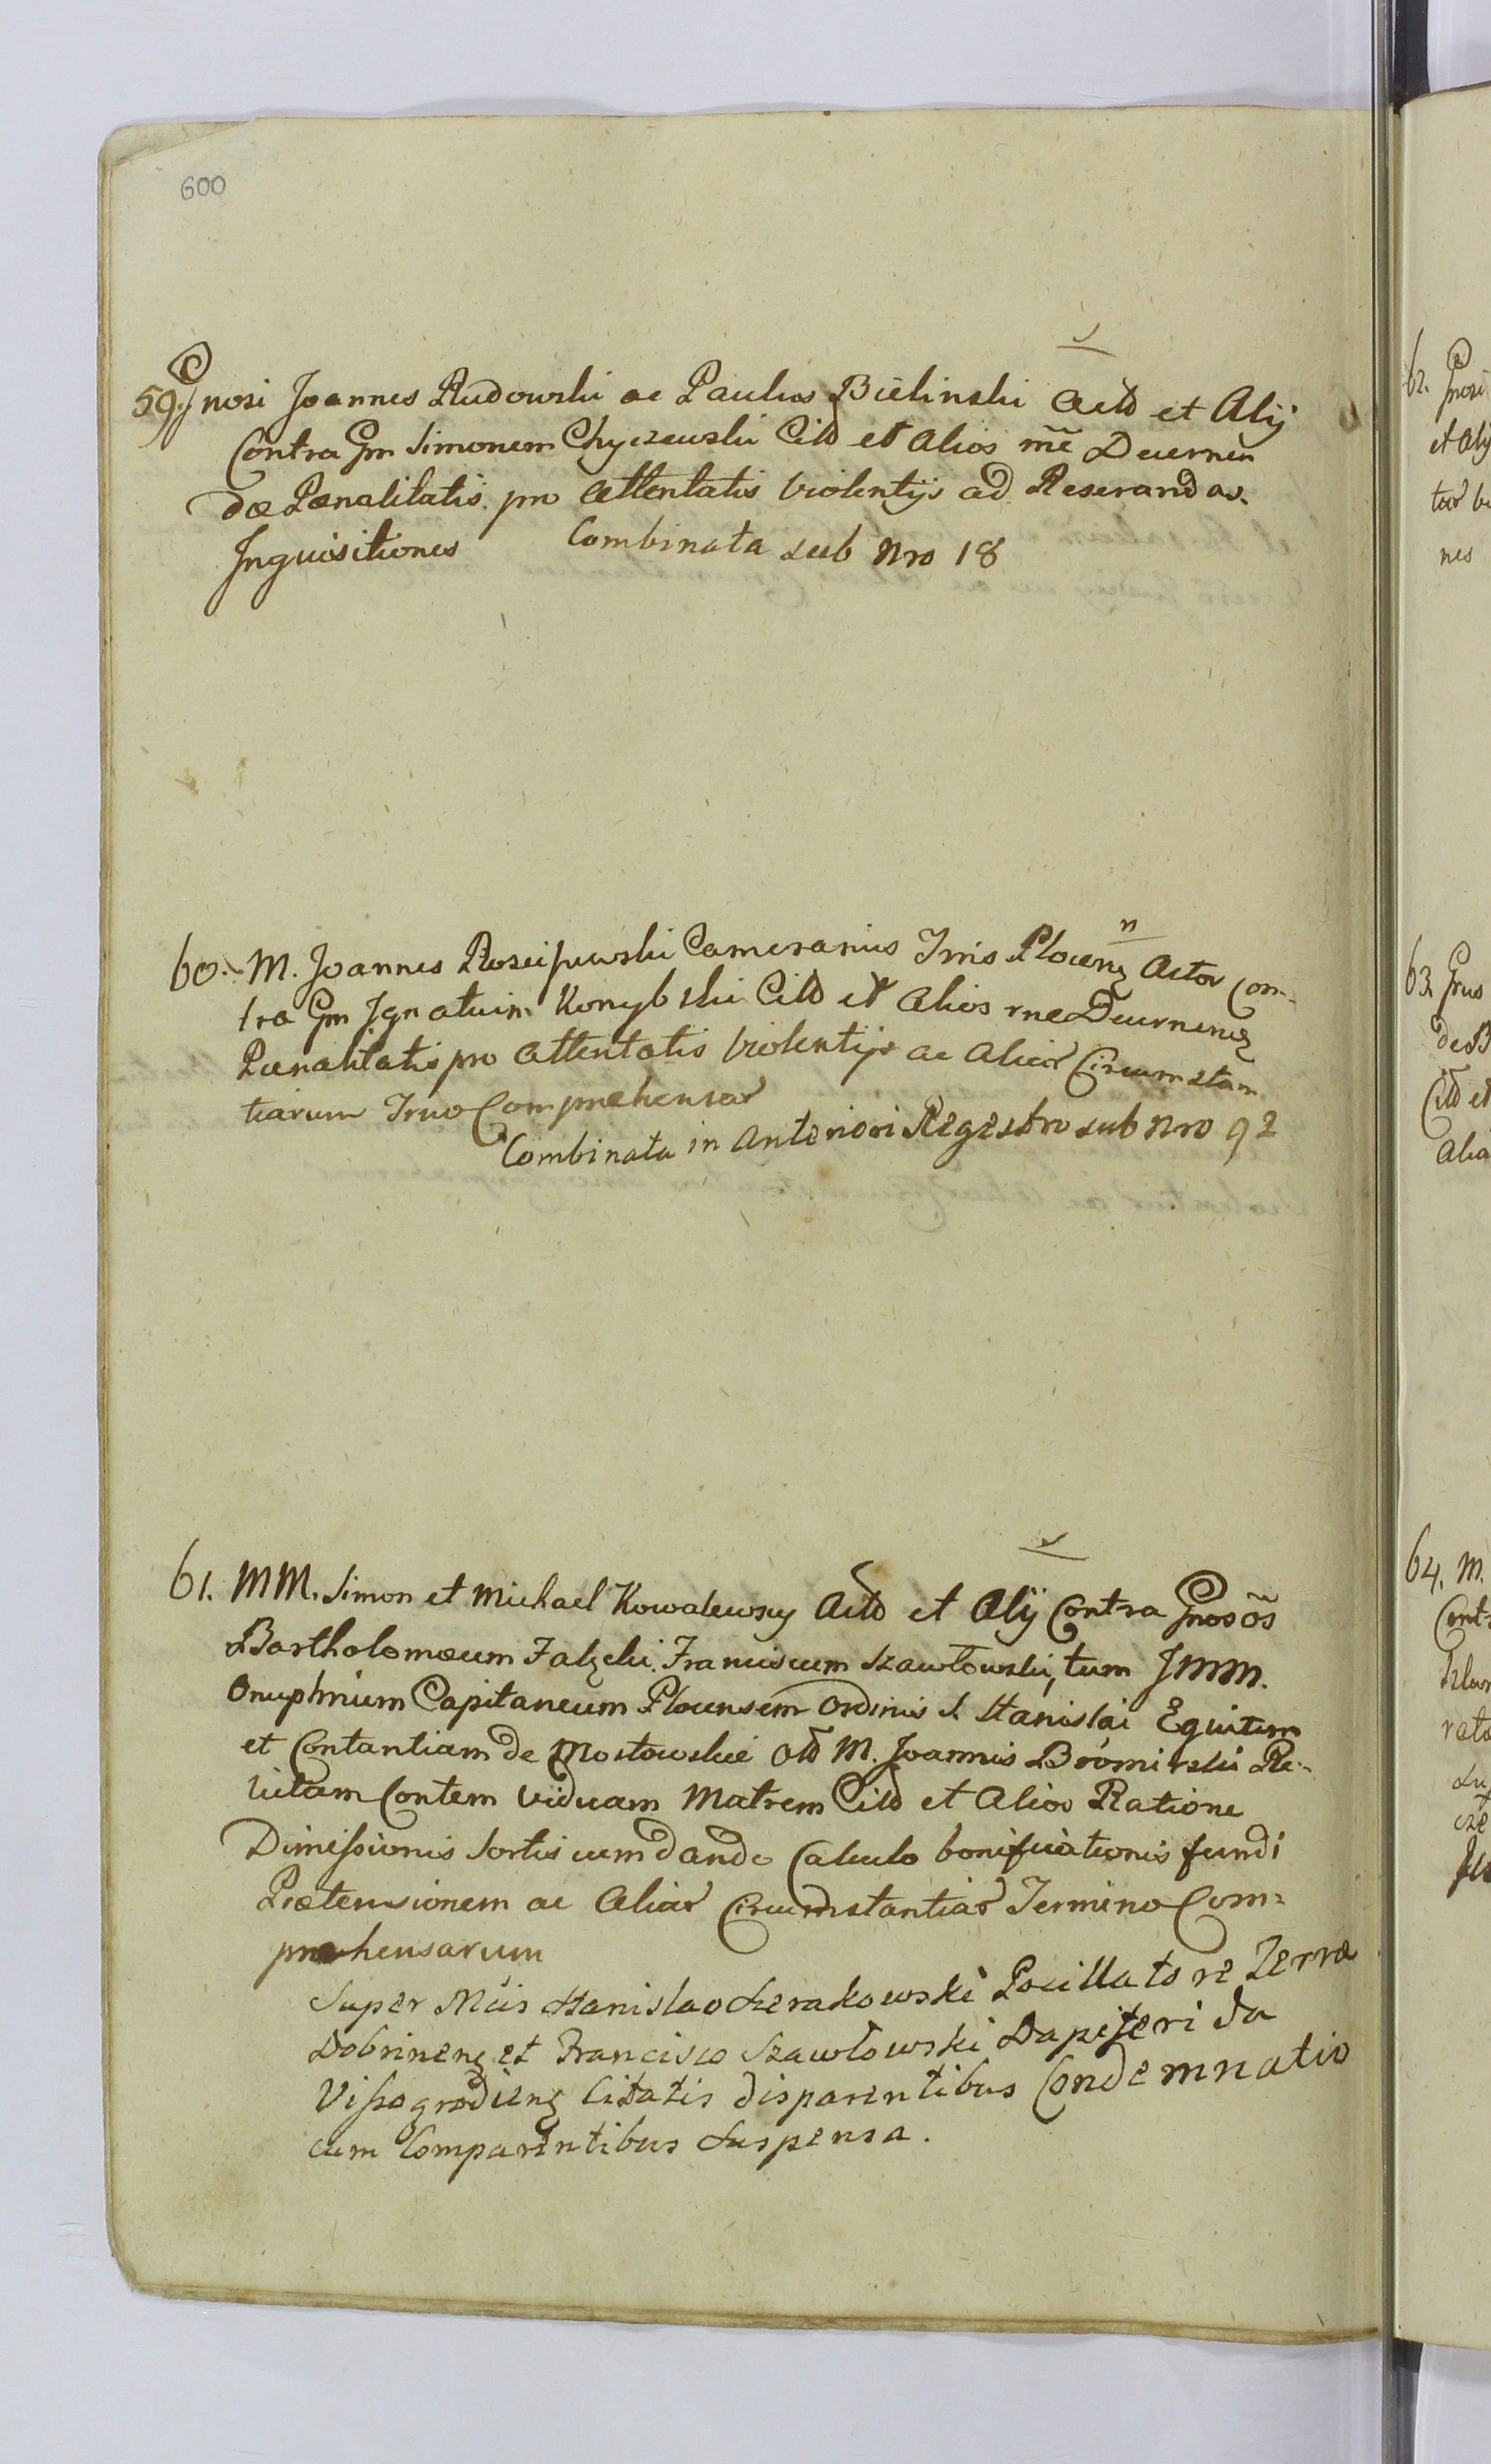 600
59. Gnosi Joannes Rudowski ac Paulus Bielinski Actō et Alij
Contra Gm Simonem Chyczewski Citō et Alios rñe Decernen
dæ Pœnalitatis pro Attentatis violentijs ad Reserandas
Inquisitiones Combinata sub Nro 18
60. M. Joannes Camerarius Trris Plocenß Actor Con-
tra Gm Ignatium Konybski Citō et Alios rne Decernenẹ
Pœnalitatis pro Attentatis violentijs ac Aliar Circumstan
tiarum Trno Comprehensar
Combinata in Anteriori Regestro sub Nro 92
61. MM. Simon et Michael Kowalewscy Actō et Alij Contra Gnosōs
Bartholomæum Falęcki Franciscum Szawłowski, tum JMM.
Onuphrium Capitaneum Plocensem Ordinis S. Stanislai Equitem
et Contantiam de Mostowskie Olō M. Joannis Bromirski Re-
lictam Contem viduam Matrem Citō et Alios Ratione
Dimissionis Sortis cum dando Calculo bonificationis fundi
Prætensionem ac Aliar Circumstantiar Termino Com=
præhensarum
Super Mcis Stanislao Sierakowski Pocillatore Terræ
Dobrinenß et Francisco Szawłowski Dapiferida
Vissogrodienß Citatis disparentibus Condemnatio
cum Comparentibus Suspensa.
62.
et Alij
nes
63.
Alia
64. M.